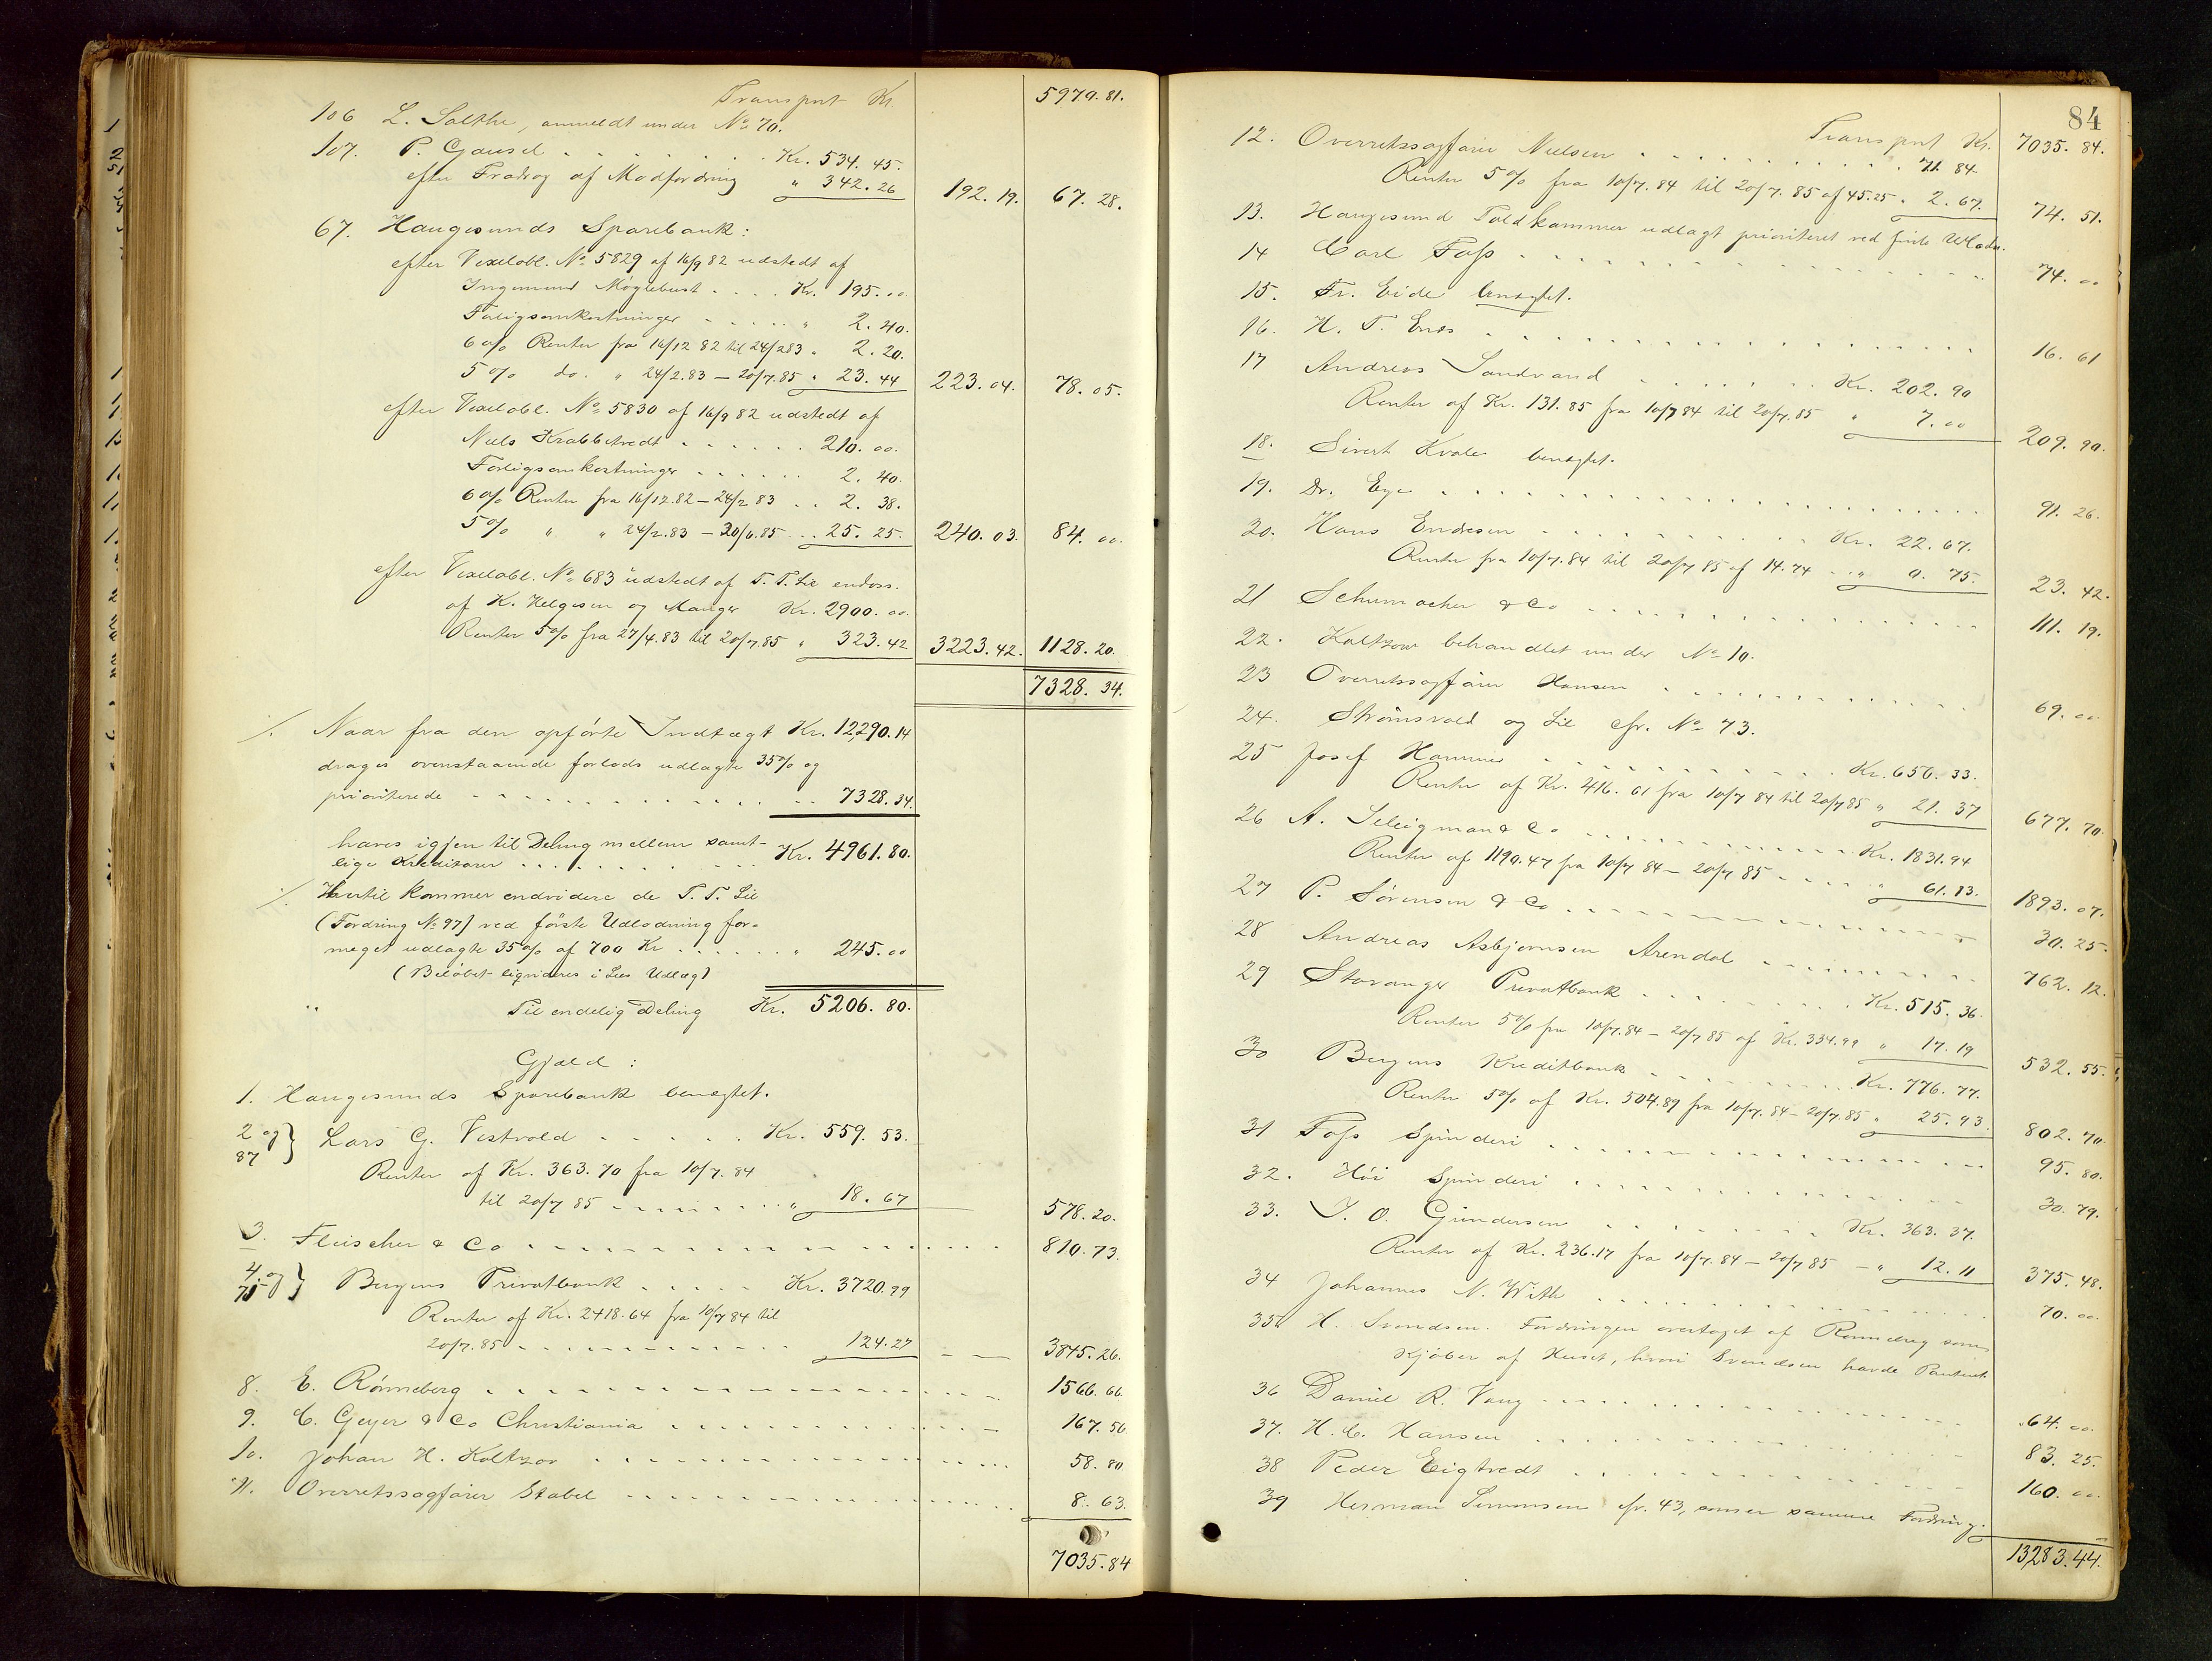 Transport Kr. 5979.81.
106 L. Salthe, anmeldt under No 70.
107. P. Gausel . . . . . . . Kr. 534. 45.
efter Fradrag af Modfordring " 342. 26 192. 19. 67. 28.
67. Haugesunds Sparebank:
efter Vexelobl. No 5829 af 16/9 82 udstedt af
Ingemund Møglebust . . . . Kr. 195. 00.
Forligsomkostninger . . . . . " 2. 40.
6 o/o Renter fra 16/12 82 til 24/2 83 " 2. 20.
5 o/o do. " 24/2.83 — 20/7.85 " 23. 44 223. 04. 78. 05.
efter Vexelobl. No 5830 af 16/9 82 udstedt af
Niels Krabbetvedt . . . . . . 210. 00.
Forligsomkostninger . . . . . . 2. 40.
6 o/o Renter fra 16/12.82 — 24/2 83 . . 2. 38.
5 o/o " " 24/2.83 — 20/6.85 . . . 25. 25. 240. 03. 84. 00.
efter Vexelobl. No 683 udstedt af T. T. Lie endoss.
af K. Helgesen og Manger Kr. 2900. 00.
Renter 5 o/o fra 27/4.83 til 20/7.85 " 323. 42 3223. 42. 1128. 20.
7328. 34.
./. Naar fra den opførte Indtægt Kr. 12,290. 14
drages ovenstaaende forlods udlagte 35 o/o og
prioriterede . . . . . . . . . . . . . . 7328. 34.
haves igjen til Deling mellem samt-
lige Kreditorer . . . . . . . . . . Kr. 4961. 80.
./. Hertil kommer endvidere de T. T. Lie
(Fordring No 97) ved første Udlodning for-
meget udlagte 35 o/o af 700 Kr . . . . . . " 245. 00
(Beløbet liqvideres i Lies Udlæg)
" Til endelig Deling Kr. 5206. 80.
Gjæld :
1. Haugesunds Sparebank benægtet.
2 og 87 } Lars G. Vestvold . . . . . . Kr. 559. 53.
Renter af Kr. 363. 70 fra 10/7. 84
til 20/7 85 . . . . . . . . . " 18. 67 578. 20.
3. Fleischer & Co . . . . . . . . . . . . . . . 810. 73.
4 og 71 } Bergens Privatbank . . . . . Kr. 3720. 99
Renter af Kr. 2418. 64 fra 10/7 84 til
20/7. 85 . . . . . . . . . . . . . 124. 27 3845. 26.
8. E. Rønneberg . . . . . . . . . . . . . . . 1566. 66.
9. C. Geyer & Co Christiania . . . . . . . . . . 167. 56
10. Johan H. Koltzov . . . . . . . . . . . . . . 58. 80
11. Overretssagfører Stabel . . . . . . . . . . . . 8. 63.
7035. 84
84
Transport Kr. 7035. 84.
12. Overretssagfører Nielsen . . . . . . . . . . . " 71. 84
Renter 5 o/o fra 10/7. 84 til 20/7. 85 af 45.25 " 2. 67. 74. 51.
13. Haugesund Toldkammer udlagt prioriteret ved første Udlodn.
14 Carl Foss . . . . . . . . . . . . . . . 74. 00
15. Fr. Eide benægtet.
16. H. T. Enes . . . . . . . . . . . . . . . 16. 61
17 Andreas Sandvand . . . . . . . Kr. 202. 90
Renter af Kr. 131. 85 fra 10/7 84 til 20/7. 85 " 7. 00 209. 90.
18. Sivert Kvale benægtet.
19. Dr. Eye . . . . . . . . . . . . . . . . 91. 26.
20. Hans Endresen . . . . . . . . . . Kr. 22. 67.
Renter fra 10/7. 84 til 20/7 85 af 14. 74 . . " 0. 75. 23. 42.
21 Schumacher & Co . . . . . . . . . . . . . 111. 19.
22. Koltzow behandlet under No 10.
23 Overretssagfører Hansen . . . . . . . . . . . 69. 00
24. Strømsvold og Lie cfr. No 73.
25 Josef Hammer . . . . . . . . . . . . Kr. 656. 33.
Renter af Kr. 416. 61 fra 10/7 84 til 20/7 85 " 21. 37 677. 70.
26 A. Seleigman & Co . . . . . . . . . . . . Kr. 1831. 94
Renter af 1190. 47 fra 10/7 84 — 20/7 85 . . . . " 61. 13. 1893. 07.
27 P. Sørensen & Co . . . . . . . . . . . . . . 30. 25.
28 Andreas Asbjørnsen Arendal . . . . . . . . . 762. 12.
29 Stavanger Privatbank . . . . . . . . . Kr. 515. 36
Renter 5 o/o fra 10/7. 84 — 20/7 85 af Kr. 334. 99 " 17. 19 532. 55.
30 Bergens Kreditbank . . . . . . . . . . Kr. 776. 77.
Renter 5 o/o af Kr. 504. 89 fra 10/7. 84 — 20/7. 85 " 25. 93. 802. 70.
31 Foss Spinderi . . . . . . . . . . . . . . . 95. 80.
32. Høi Spinderi . . . . . . . . . . . . . . 30. 79.
33. I. O. Gundersen . . . . . . . . . Kr. 363. 37.
Renter af Kr. 236. 17 fra 10/7. 84 — 20/7 85 — " 12. 11 375. 48.
34 Johannes N. With . . . . . . . . . . . . . . 70. 00.
35 H. Svendsen. Fordringen overtaget af Rønnevig som
Kjøber af Huset, hvori Svendsen havde Panteret
36 Daniel R. Vang . . . . . . . . . . . . . . 64. 00.
37. H. C. Hansen . . . . . . . . . . . . . . . 83. 25.
38 Peder Eigtvedt . . . . . . . . . . . . . . 160. 00.
39 Herman Simonsen cfr. 43, som er samme Fordring.
13,283. 44.